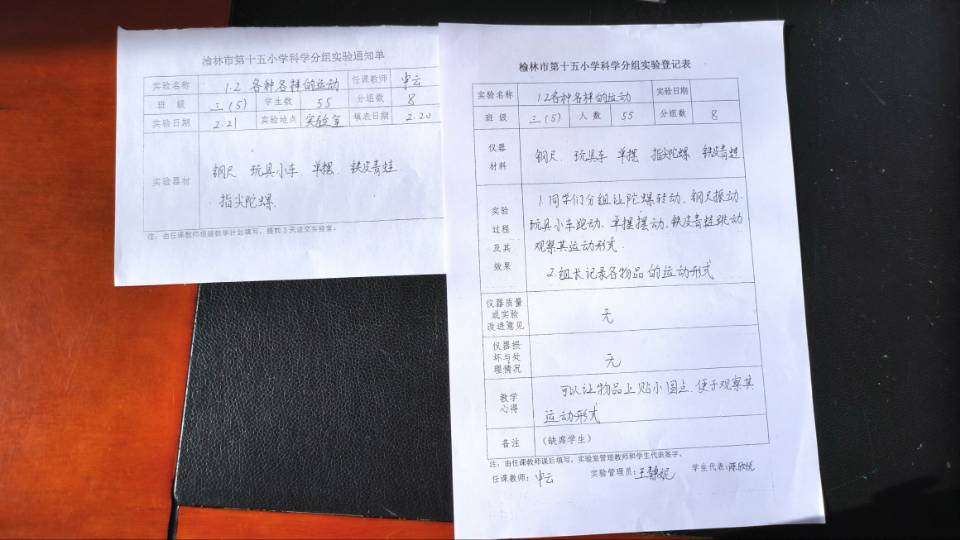 榆林市第十五小学科学分组实验通知单
实验名称 1.2 各种各样的运动 任课教师 申云
班 级 三(5) 学生数 55 分组数 8
实验日期 2.21 实验地点 实验室 填表日期 2.20
实验器材
钢尺 玩具小车 单摆 铁皮青蛙
指尖陀螺
注:由任课教师根据教学计划填写,提前3天送交实验室。
榆林市第十五小学科学分组实验登记表
实验名称 1.2各种各样的运动 实验日期
班 级 三(5) 人 数 55 分组数 8
仪器
材料
钢尺 玩具车 单摆 指尖陀螺 铁皮青蛙
实验
过程
及其
效果
1.同学们分组让陀螺转动、钢尺振动、
玩具小车跑动、单摆摆动、铁皮青蛙跳动
观察其运动形式.
2.组长记录各物品的运动形式
仪器质量
或实验
改进意见
无
仪器损
坏与处
理情况
无
教学
心得
可以让物品上贴小圆点.便于观察其
运动形式
备注 (缺席学生)
注:由任课教师课后填写,实验室管理教师和学生代表签字。
任课教师:申云 实验管理员:王 学生代表:陈欣